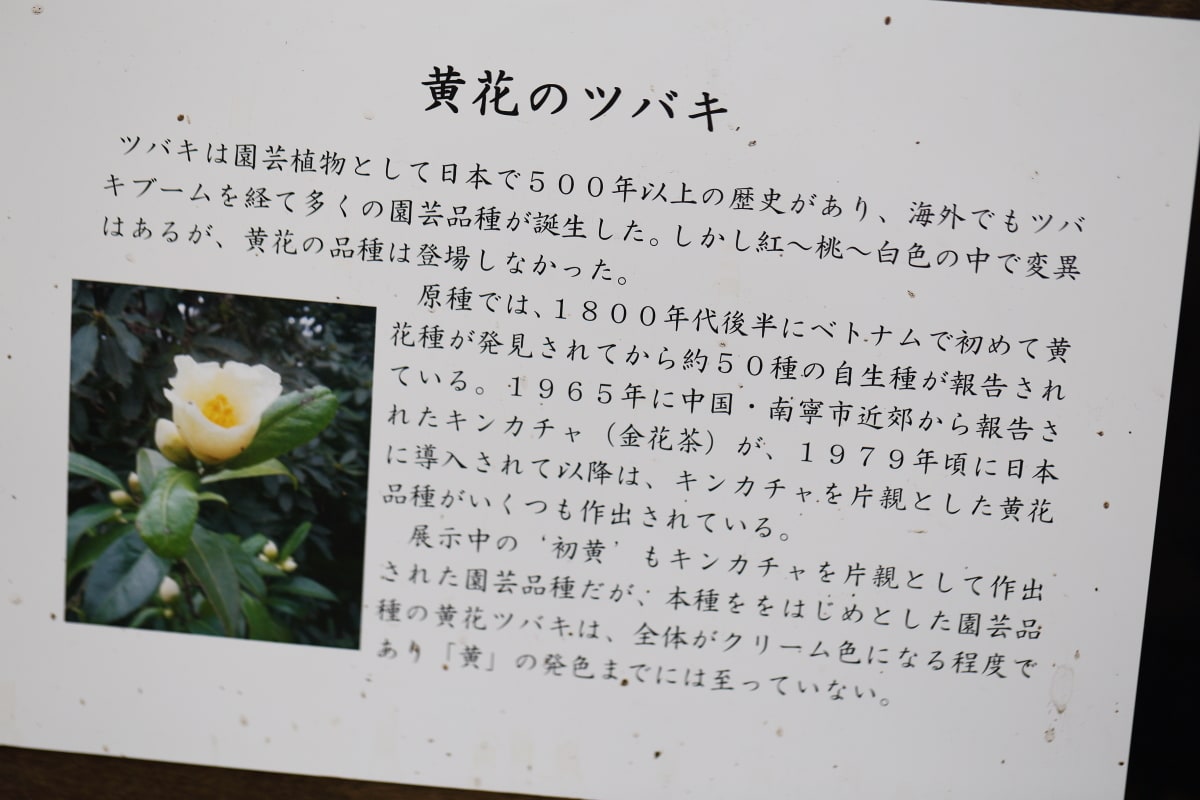 黄花のツバキ
ツバキは園芸植物として日本で５００年以上の歴史があり、海外でもツバ
キブームを経て多くの園芸品種が誕生した。しかし紅～桃～白色の中で変異
はあるが、黄花の品種は登場しなかった。
原種では、１８００年代後半にベトナムで初めて黄
花種が発見されてから約５０種の自生種が報告され
ている。１９６５年に中国・南寧市近郊から報告さ
れたキンカチャ（金花茶）が、１９７９年頃に日本
に導入されて以降は、キンカチャを片親とした黄花
品種がいくつも作出されている。
展示中の‘初黄’もキンカチャを片親として作出
された園芸品種だが、本種ををはじめとした園芸品
種の黄花ツバキは、全体がクリーム色になる程度で
あり「黄」の発色までには至っていない。